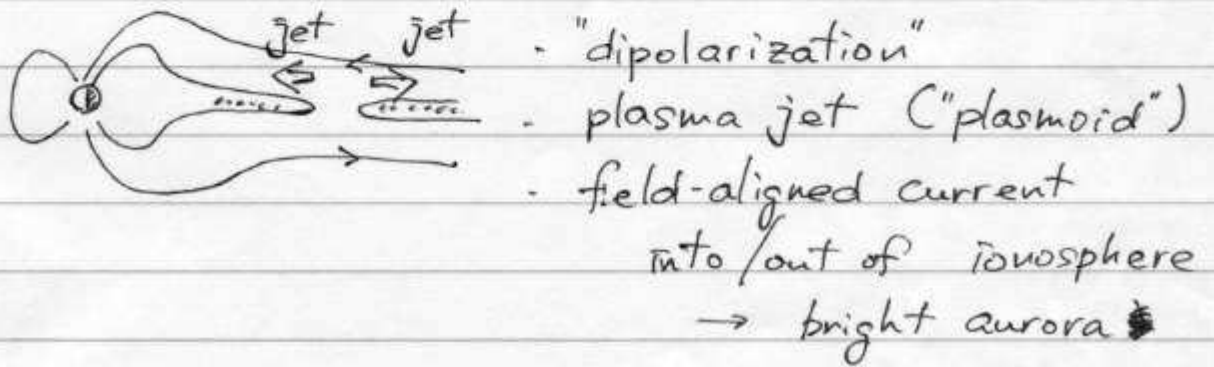 jet jet
· "dipolarization"
· plasma jet ("plasmoid")
· field-aligned current
into/out of ionosphere
→ bright aurora